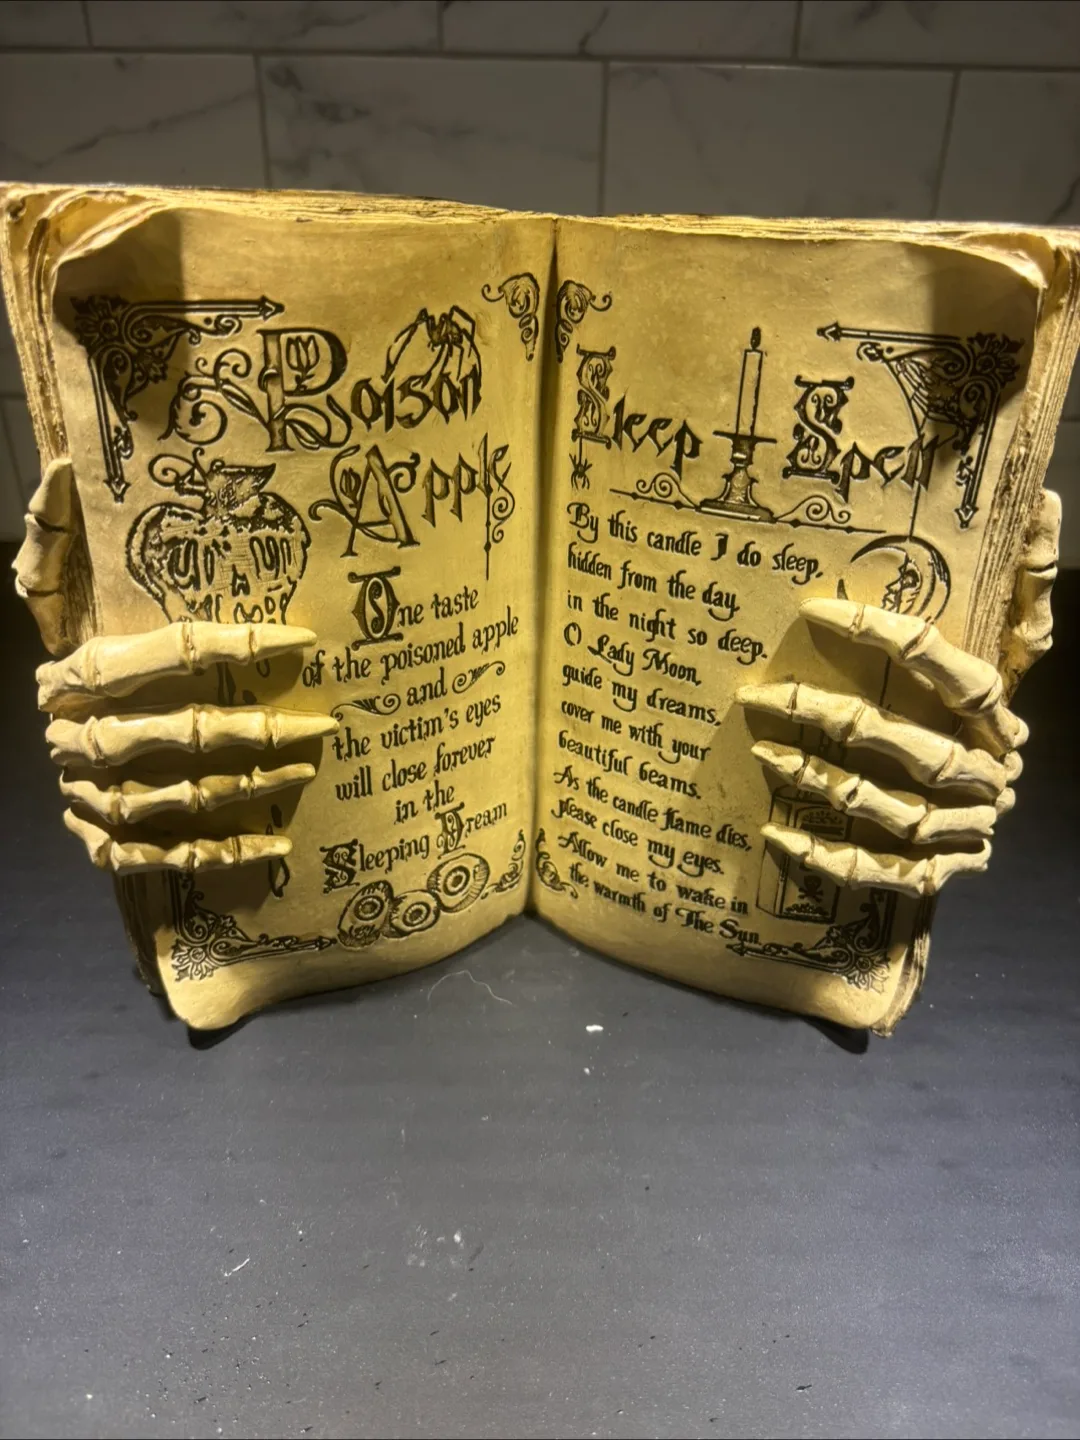 Poison
Apple
One taste
of the poisoned apple
and
the victim's eyes
will close forever
in the
Sleeping Dream
Sleep Spell
By this candle I do sleep,
hidden from the day,
in the night so deep.
O Lady Moon,
guide my dreams,
cover me with your
beautiful beams.
As the candle flame dies,
please close my eyes.
Allow me to wake in
the warmth of The Sun.